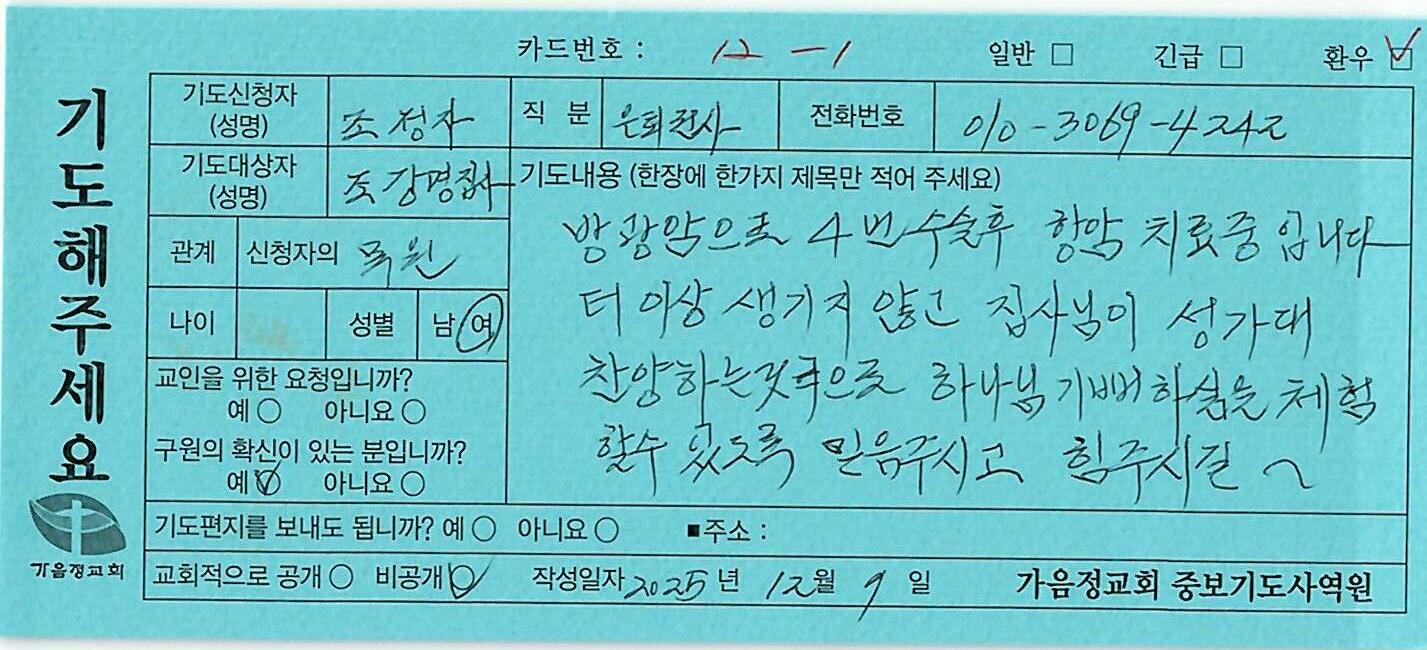 카드번호 : 12 - 1 일반 □ 긴급 □ 환우 ☑
기도해주세요
가음정교회
기도신청자 (성명) 조정자 직 분 은퇴권사 전화번호 010-3069-4242
기도대상자 (성명) 조강명집사
관계 신청자의 목원
나이 성별 남 여
교인을 위한 요청입니까?
예 ○ 아니요 ○
구원의 확신이 있는 분입니까?
예 ☑ 아니요 ○
기도내용 (한장에 한가지 제목만 적어 주세요)
방광암으로 4번 수술후 항암 치료중 입니다
더 이상 생기지 않고 집사님이 성가대
찬양하는것으로 하나님 기뻐하심을 체험
할수 있도록 믿음주시고 힘주시길 ~
기도편지를 보내도 됩니까? 예 ○ 아니요 ○ ■주소 :
교회적으로 공개 ○ 비공개 ☑ 작성일자 2025 년 12 월 9 일 가음정교회 중보기도사역원